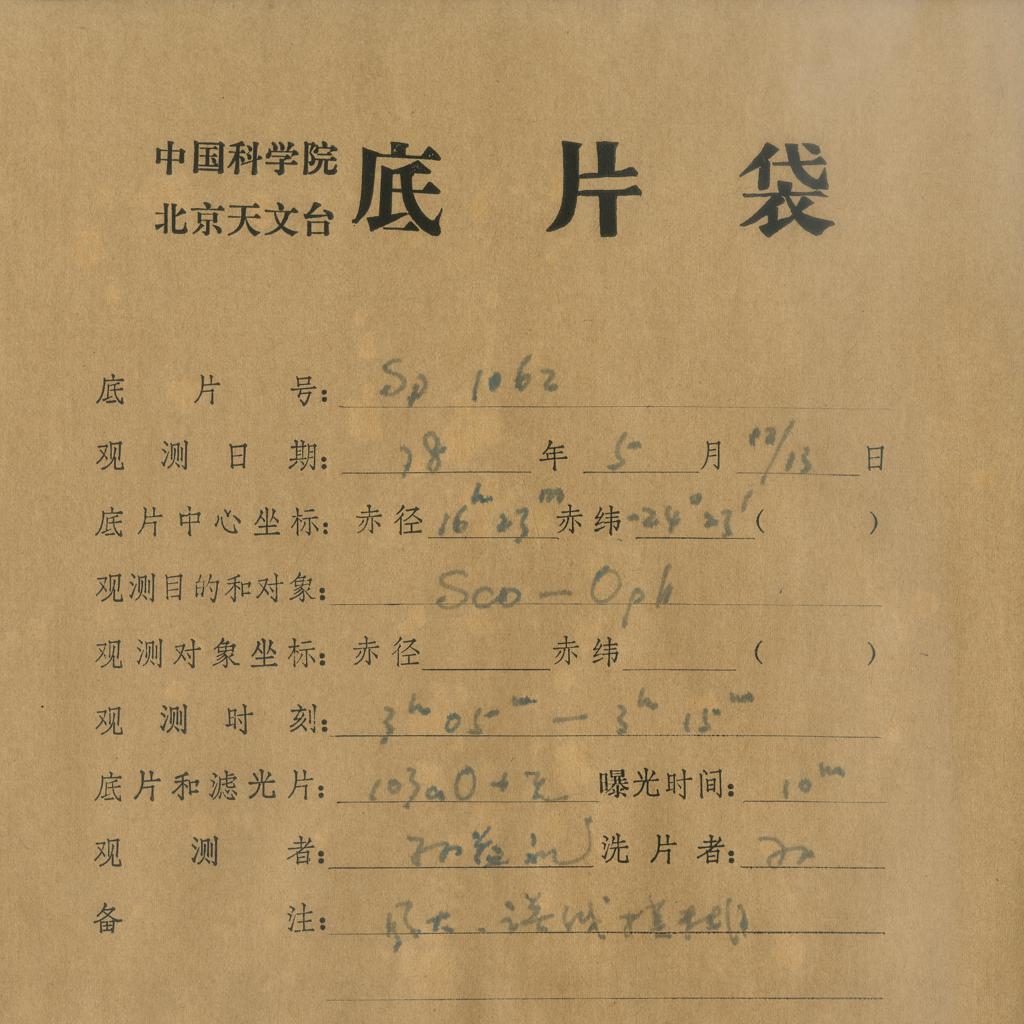 中国科学院
北京天文台
底片袋
底片号: Sp 1062
观测日期: 78 年 5 月 12/13 日
底片中心坐标: 赤径 16h 23m 赤纬 -24°23′ ( )
观测目的和对象: Sco — Oph
观测对象坐标: 赤径 赤纬 ( )
观测时刻: 3h 05m — 3h 15m
底片和滤光片: 103aO + 无 曝光时间: 10m
观测者: 孙 洗片者: 孙
备注: 风大.